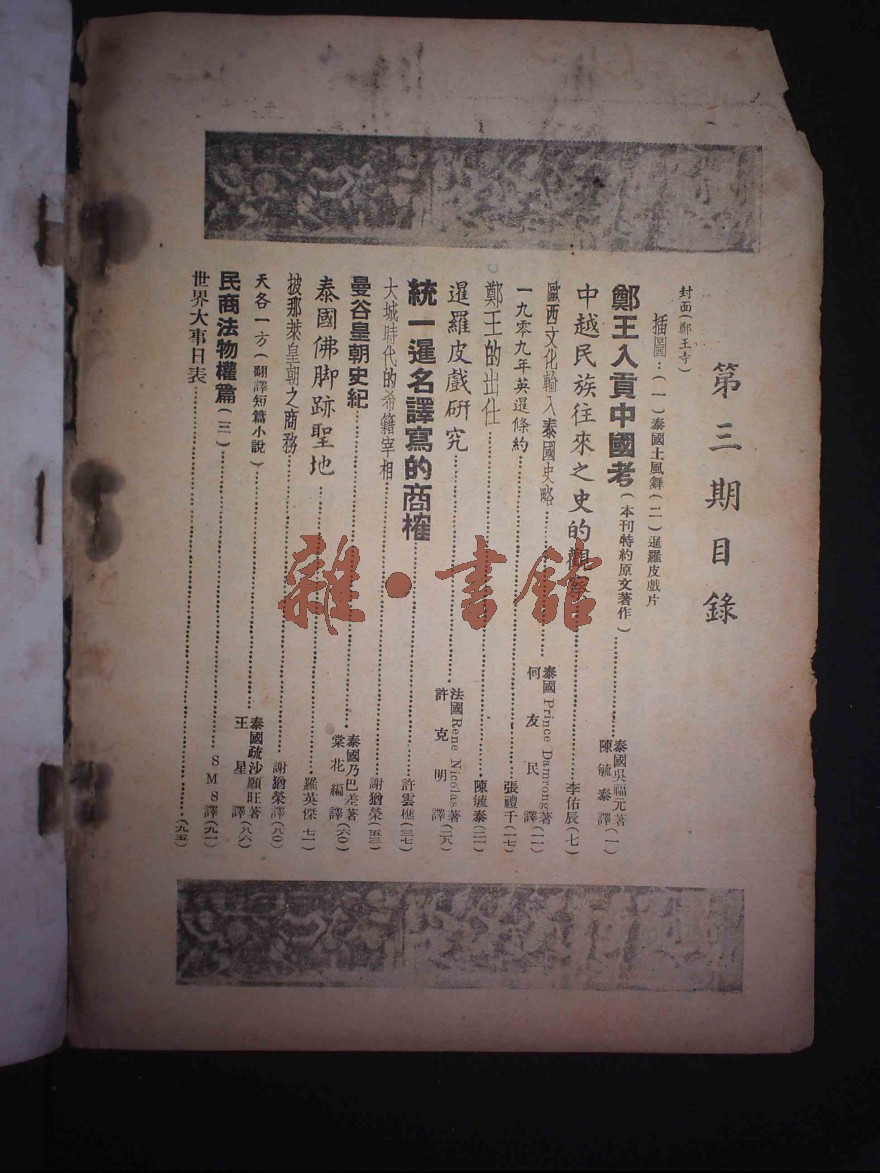 第三期目錄
封面(鄭王寺)
插圖:(一)泰國土風舞(二)暹羅皮戲片
鄭王入貢中國考(本刊特約原文著作)……泰國吳福元著 陳毓泰譯(一)
中越民族往來之史的觀察……李佑辰(七)
歐西文化輸入泰國史略……泰國Prince Damrong著 何友民譯(一一)
一九零九年英暹條約……張禮千(一七)
鄭王的出仕……陳毓泰(二一)
暹羅皮戲研究……法國Rene Nicolas著 許克明譯(二八)
統一暹名譯寫的商榷……許雲樵(三七)
大城時代的希籍宰相……謝猶榮(五三)
曼谷皇朝史紀……泰國乃巴差著 棠花編譯(六〇)
泰國佛脚跡聖地……羅英傑(七一)
披那萊皇朝之商務……謝猶榮譯(八〇)
天各一方(翻譯短篇小說)……泰國疏沙願旺著 王星譯(八六)
民商法物權篇(三)……SMS譯(九一)
世界大事日表……(九五)
雜·書館